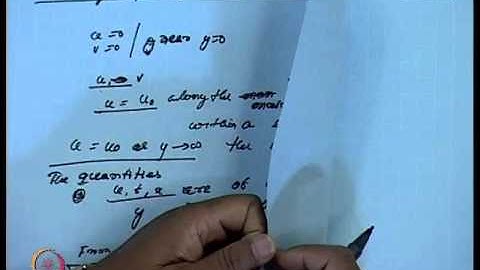 u = 0
v = 0 | y = 0
u, v
u = u₀ along the
within a
u = u₀ as y → ∞ the
The quantities
u, t, u are of
y
From